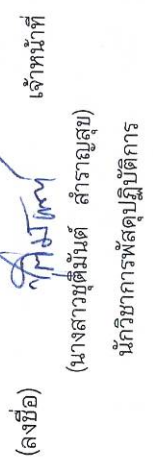 (ลงชื่อ) เจ้าหน้าที่
(นางสาวชุติมันต์ สำราญสุข)
นักวิชาการพัสดุปฏิบัติการ